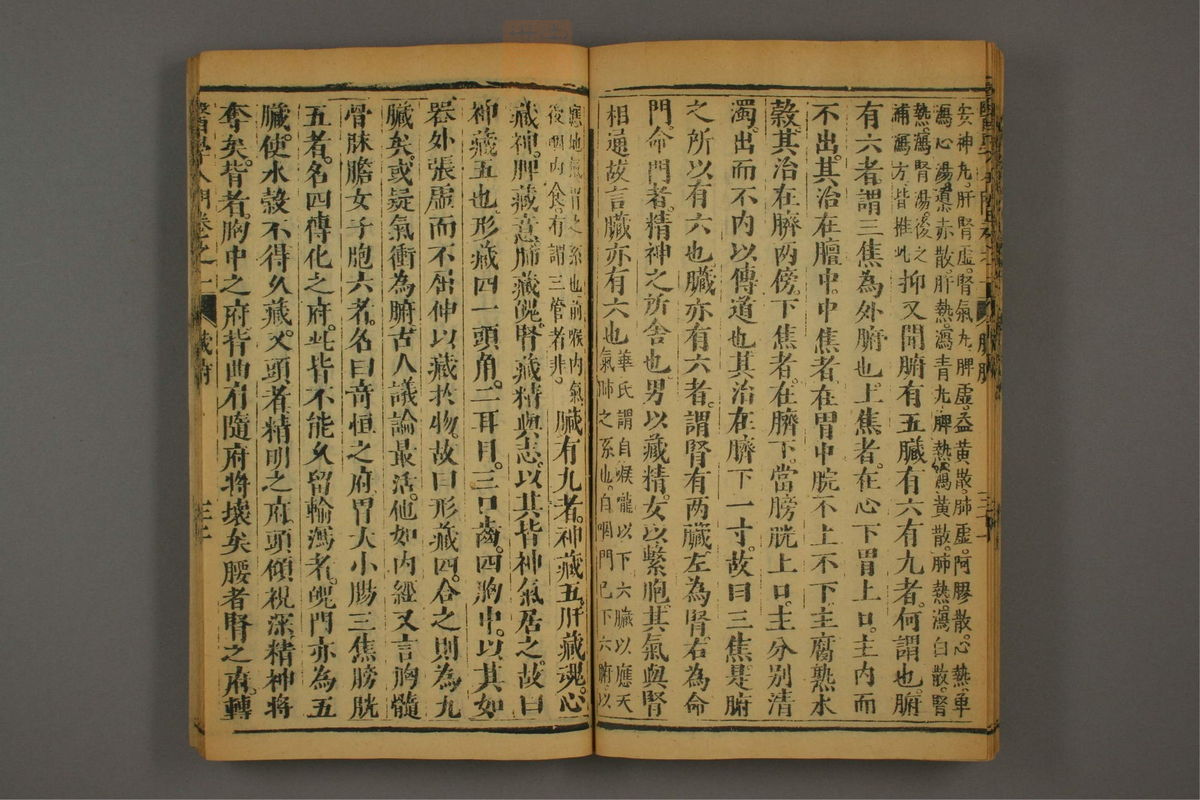 安神丸肝腎虛腎氣丸脾虛益黃散肺虛阿膠散心熱單
瀉心湯導赤散肝熱瀉青丸脾熱瀉黃散肺熱瀉白散腎
熱瀉腎湯後之
補瀉方皆推此抑又聞腑有五臟有六有九者何謂也腑
有六者謂三焦為外腑也上焦者在心下胃上口主內而
不出其治在膻中中焦者在胃中脘不上不下主腐熟水
穀其治在臍兩傍下焦者在臍下當膀胱上口主分別清
濁出而不內以傳道也其治在臍下一寸故曰三焦是腑
之所以有六也臟亦有六者謂腎有兩臟左為腎右為命
門命門者精神之所舍也男以藏精女以繫胞其氣與腎
相通故言臟亦有六也
華氏謂自喉嚨以下六臟以應天
氣肺之系也自咽門已下六腑以
應地氣謂之系也前喉內氣
後咽內食有謂三管者非
臟有九者神藏五肝藏魂心
藏神脾藏意肺藏魄腎藏精與志以其皆神氣居之故曰
神藏五也形藏四一頭角二耳目三口齒四胸中以其如
器外張虛而不屈伸以藏於物故曰形藏四合之則為九
臟矣或疑氣衝為腑古人議論最活他如內經又言胸髓
骨脉膽女子胞六者名曰奇恒之府胃大小腸三焦膀胱
五者名四傳化之府此皆不能久留輸瀉者魄門亦為五
臟使水穀不得久藏又頭者精明之府頭傾視深精神將
奪矣背者胸中之府背曲肩隨府將壞矣腰者腎之府轉
醫學入門卷之一
臟腑
三十二